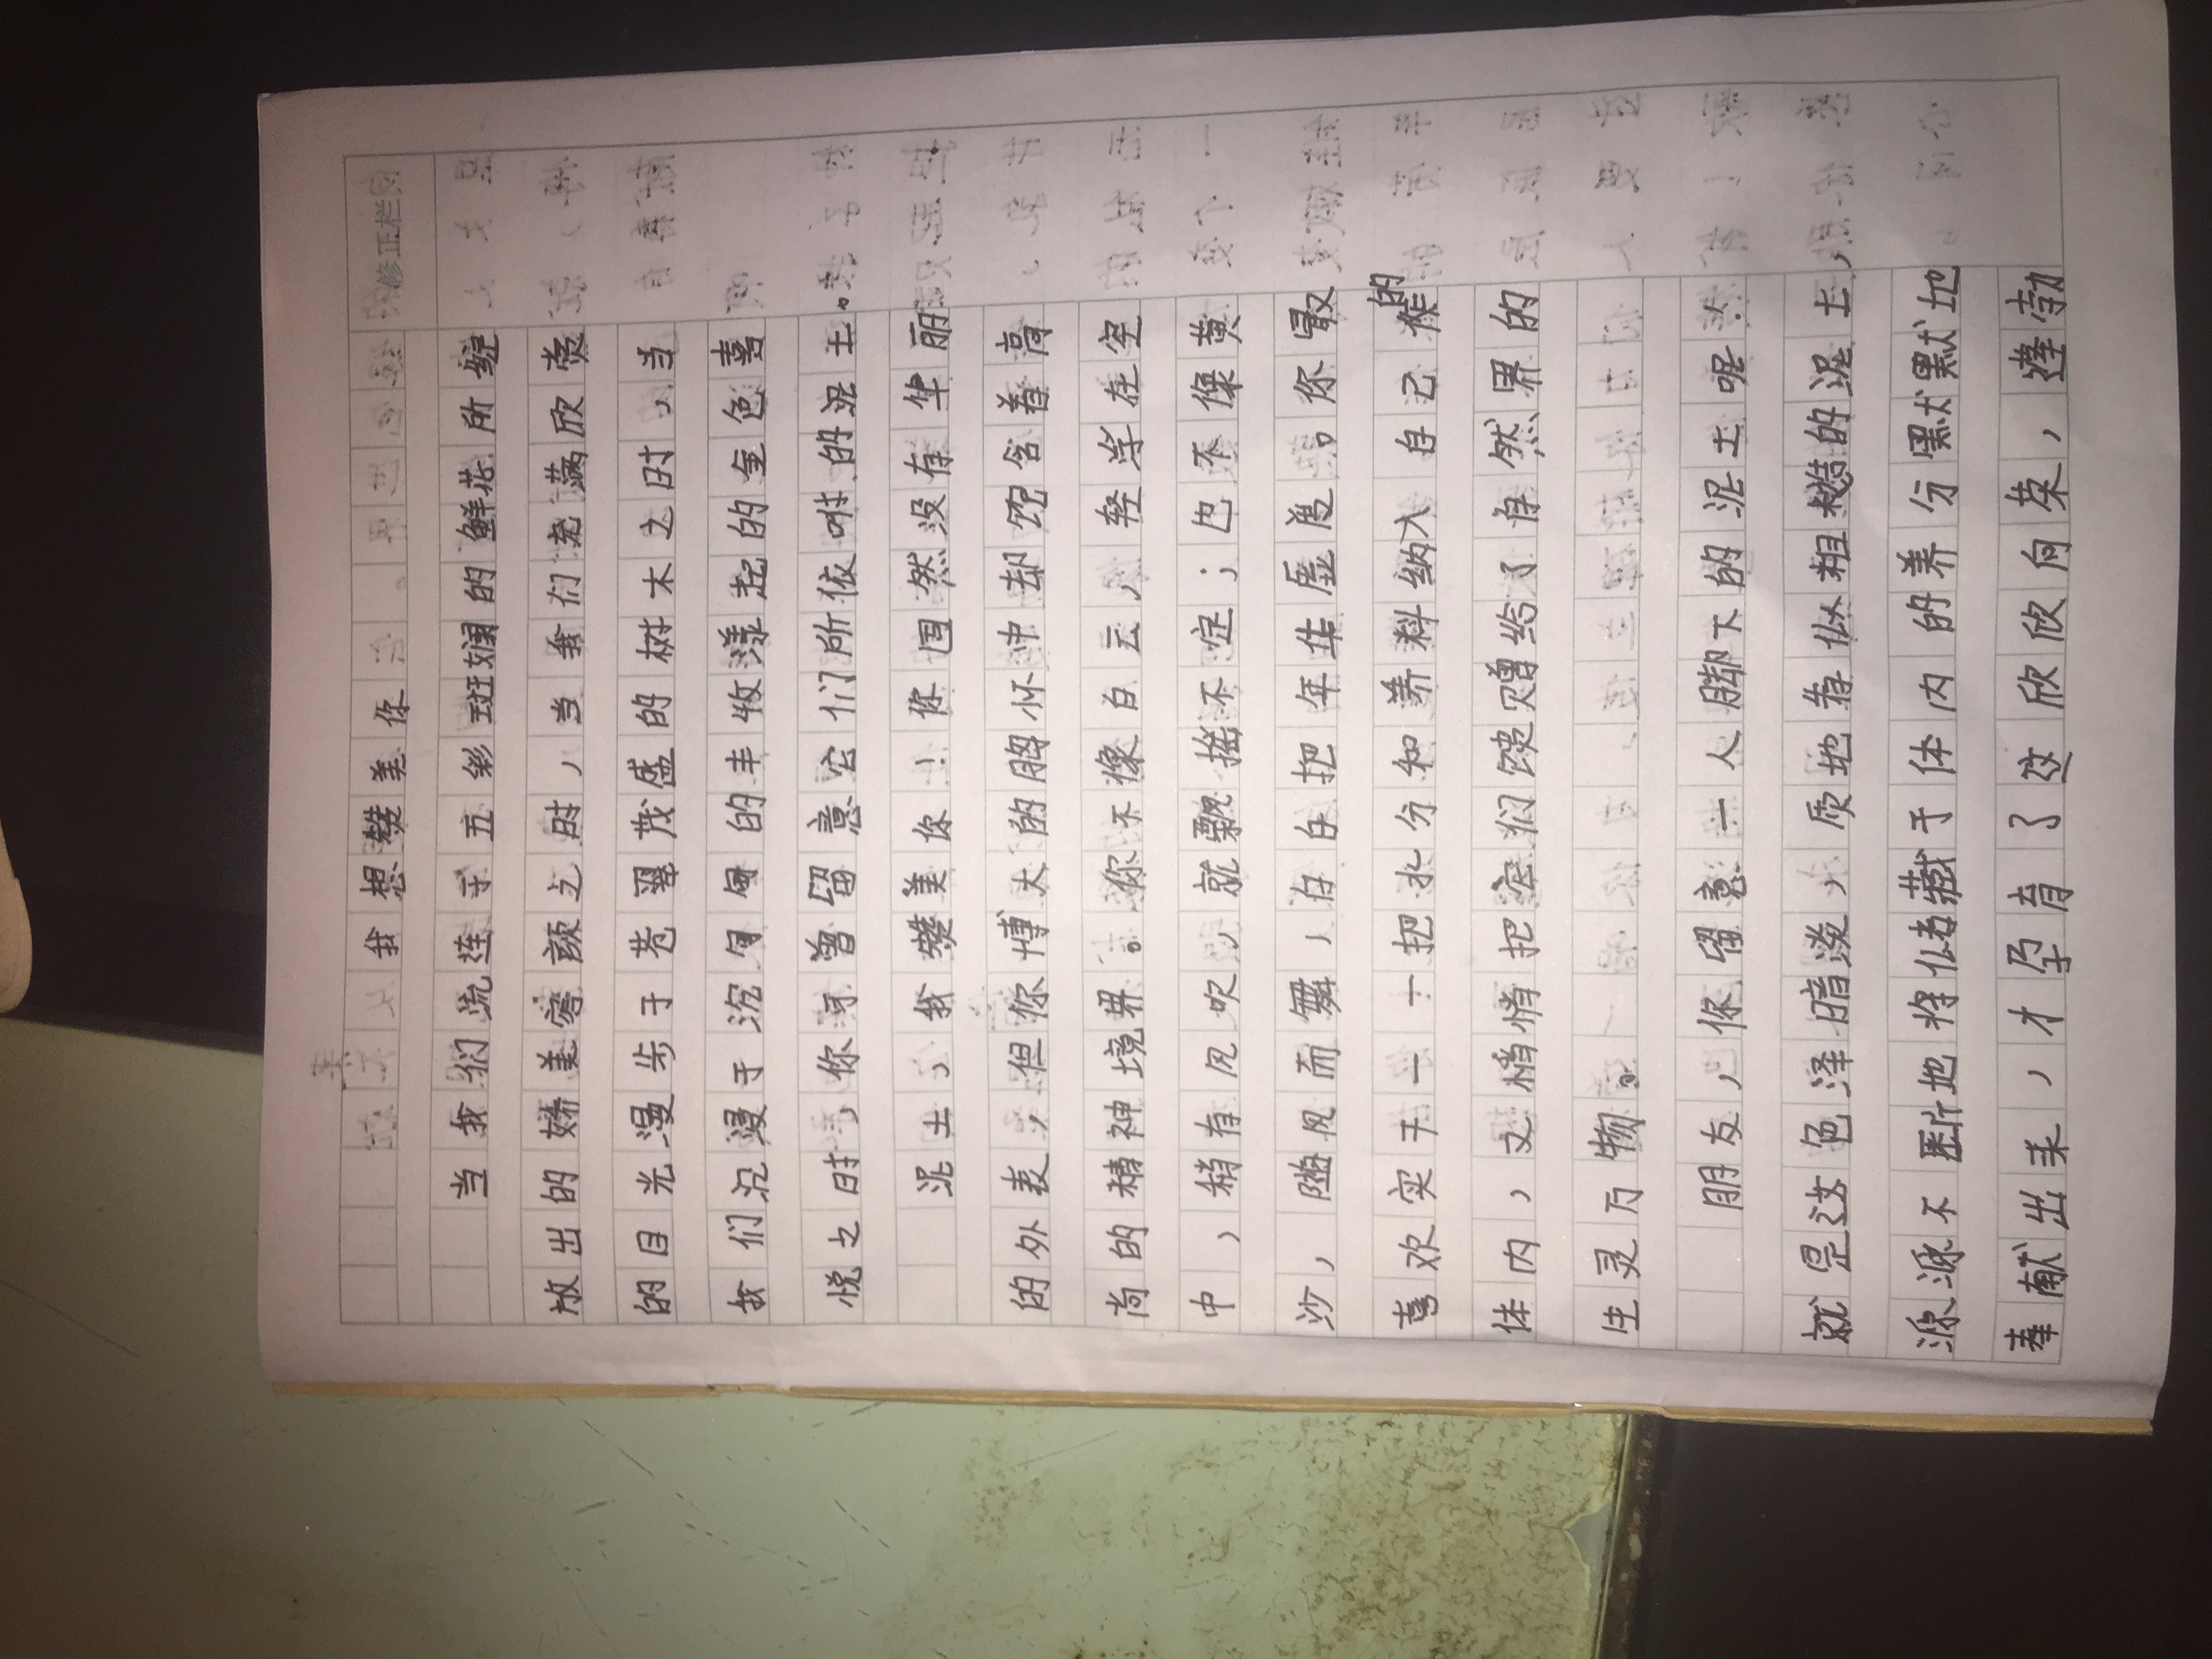 我想赞美你
当我们流连于五彩斑斓的鲜花所绽
放出的娇美容颜之时，当我们充满欣赏
的目光漫步于苍翠茂盛的树木之时，当
我们沉浸于沉甸甸的丰收漾起的金色喜
悦之时，你可曾留意它们所依附的泥土。
泥土，我赞美你！你固然没有华丽
的外表，但你博大的胸怀中却饱含着高
尚的精神境界。你不像白云，轻浮在空
中，稍有风吹，就飘摇不定；也不像黄
沙，随风而舞，白白把年华虚度。你最
喜欢实干——把水分和养料纳入自己的
体内，又悄悄把它们馈赠给了自然界的
生灵万物。
朋友，你留意一人脚下的泥土呢！
就是这色泽暗淡，质地看似粗糙的泥土，
源源不断地将储藏于体内的养分默默地
奉献出来，才孕育了这欣欣向荣，蓬勃
修正栏